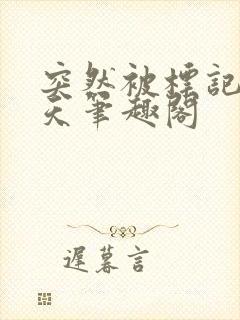 突然被標記
天筆趣閣
遲暮言